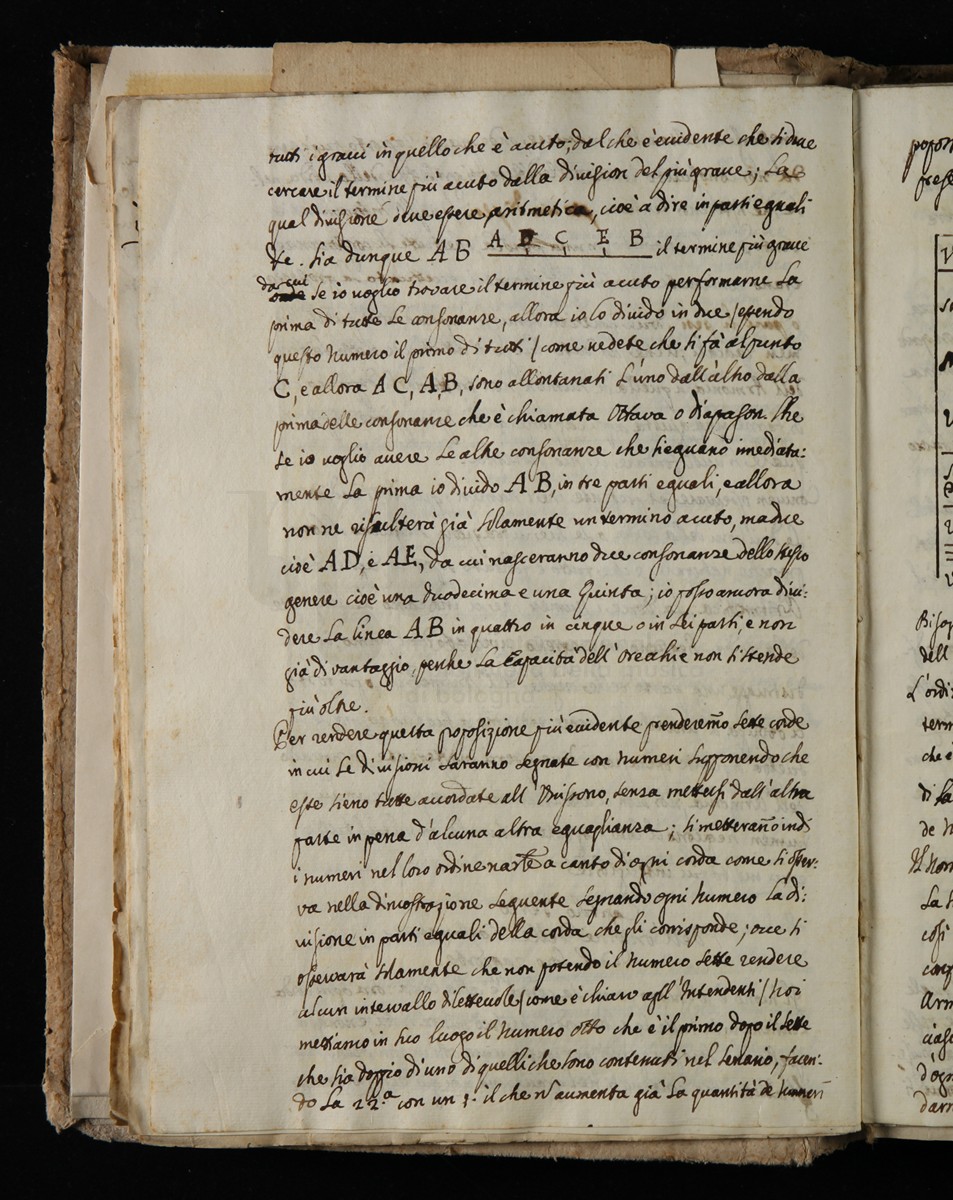 tutti i graui in quello che è acuto; dal che è euidente che si due
cercare il termine più acuto dalla diuision del più graue; La
qual diuisione deue essere aritmetica, cioè a dire in parti eguali
&c. Sia dunque AB A D C E B il termine più graue
da cui se io uoglio trovare il termine più acuto per formarne La
prima di tutte Le consonanze, allora io lo diuido in due / essendo
questo Numero il primo di tutti / come uedete che si fà al punto
C, e allora AC, AB, sono allontanati L'uno dall'altro dalla
prima delle consonanze che è chiamata Ottava o diapason. Che
se io uoglio auere Le altre consonanze che sieguano imediata:
mente La prima io diuido AB, in tre parti eguali, e allora
non ne risulterà già solamente un termino acuto, ma due
cioè AD, e AE, da cui nasceranno due consonanze dello stesso
genere cioè una duodecima e una Quinta; io posso ancora diui:
dere La linea AB in quattro in cinque o in sei parti, e non
già di vantaggio, perche La Capacità dell'Orecchie non si stende
più oltre.
Per rendere questa proposizione più euidente prenderemo sette corde
in cui Le diuisioni saranno segnate con Numeri supponendo che
esse sieno tutte accordate all'Unissono, senza mettersi dall'altra
parte in pena d'alcuna altra eguaglianza; si metteranno indi
i numeri nel loro ordine a canto di ogni corda come si osser:
va nella dimostrazione seguente segnando ogni Numero La di:
uisione in parti eguali della corda che gli corrisponde; si
osseruarà solamente che non potendo il Numero sette rendere
alcun interuallo dileteuole / come è chiaro agli Intendenti / Noi
mettiamo in suo luogo il Numero otto che è il primo dopo il sette
che sia doppio di uno di quelli che sono contenuti nel Senario, facen:
do La 22.a con un 1.: il che n' aumenta già La quantità de' Numeri